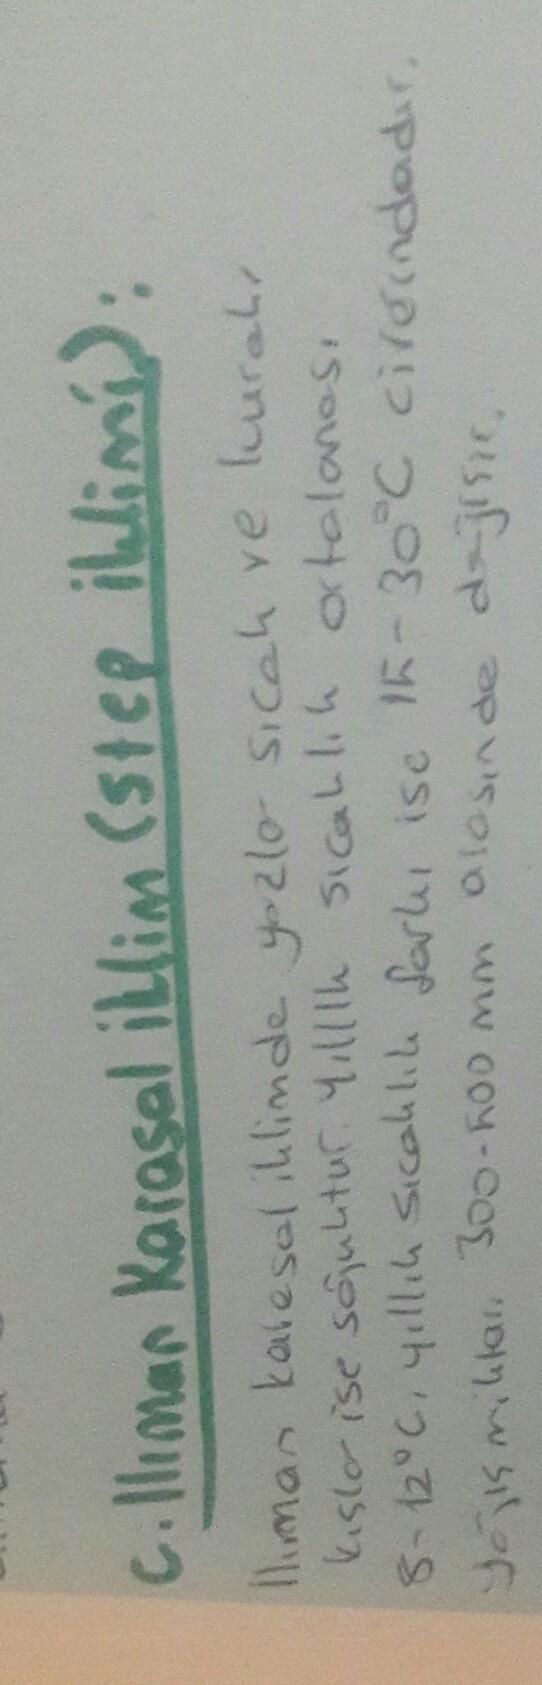 C. Ilıman Karasal iklim (step iklimi):
Ilıman karasal iklimde yazlar sıcak ve kurak,
kışlar ise soğuktur. yıllık sıcaklık ortalaması
8-12°C, yıllık sıcaklık farkı ise 15-30°C civarındadır.
yağış miktarı 300-500 mm arasında değişir.